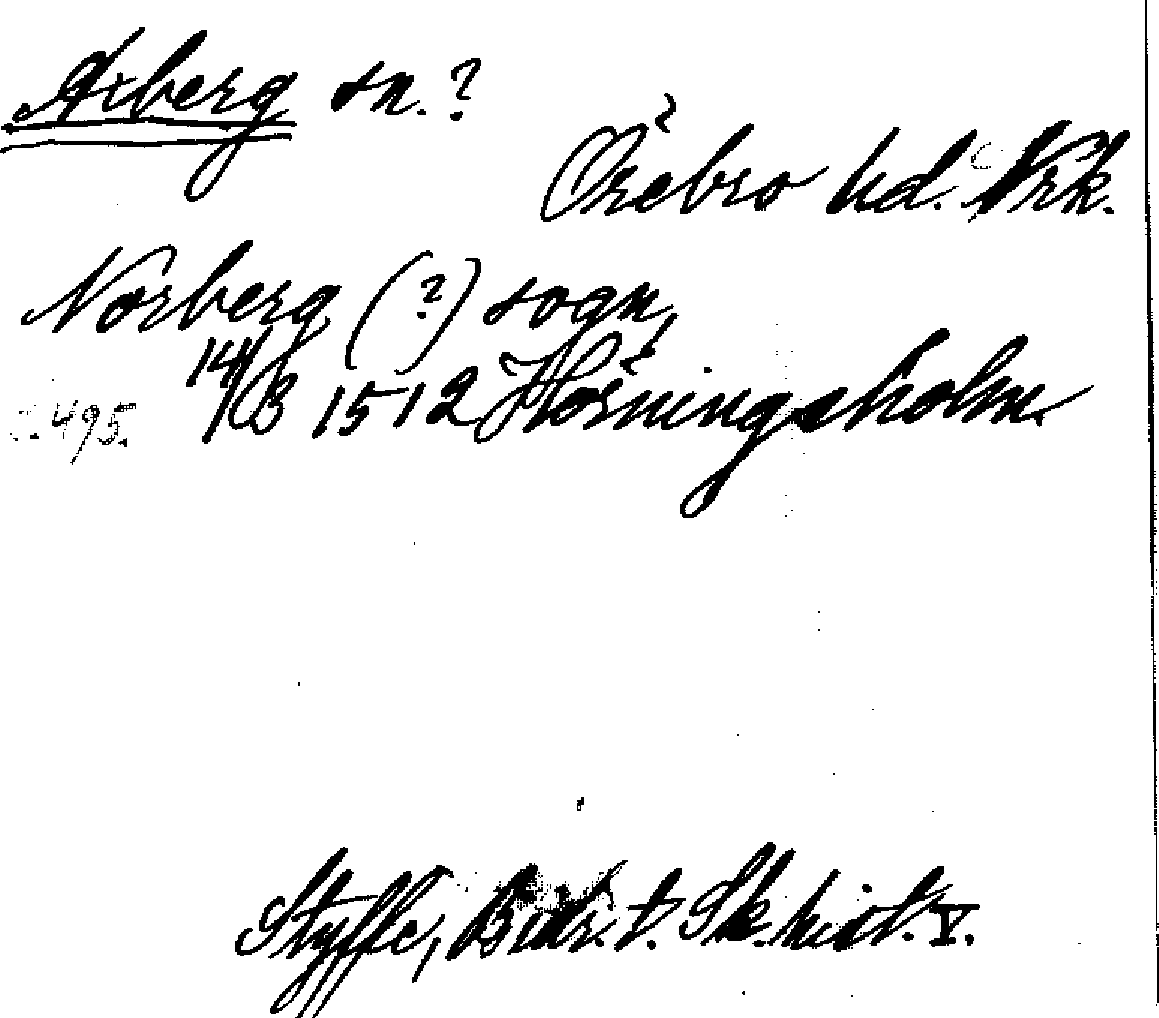 Axberg sn.?
Örebro hd. Nrk.
Norberg (?) sogn,
14/8 1512 Hörningsholm.
s. 495.
Styffe, Bidr. t. Sk. hist. V.